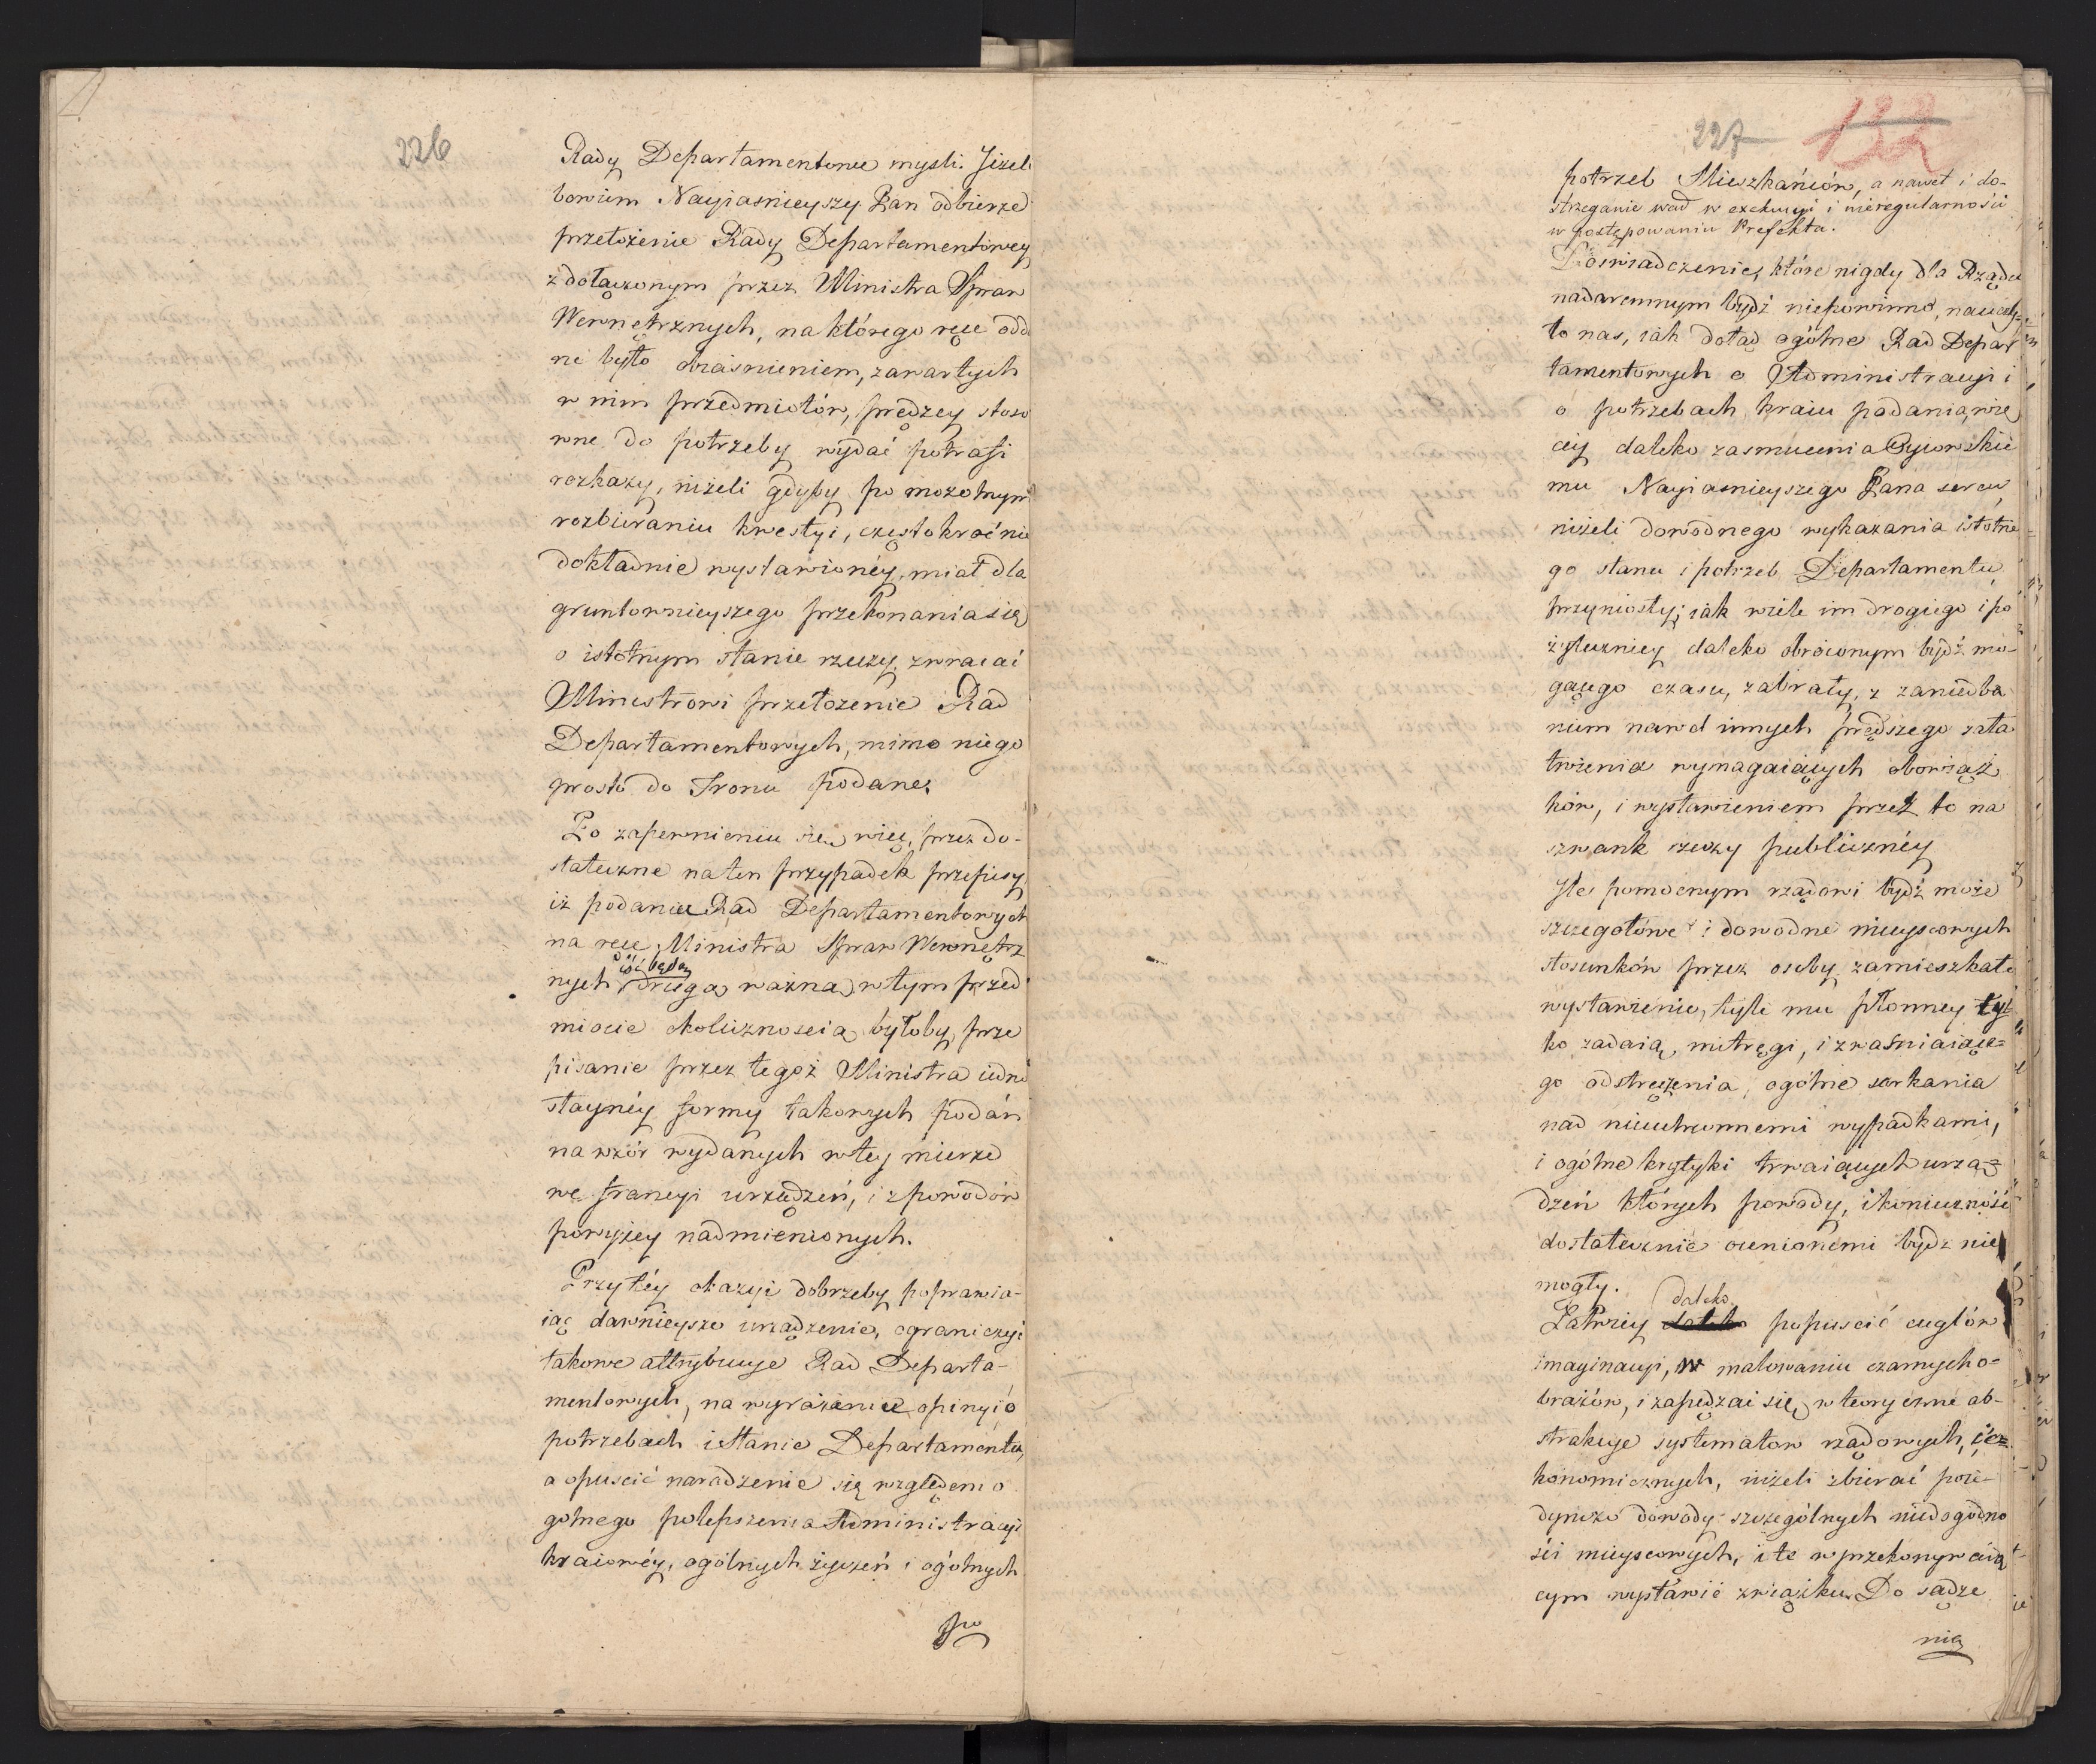 226
Rady Departamentowe mysli. Jiżeli
bowiem Nayiasnieyszy Pan odbierze
przełożenie Rady Departamentowey
z dołączonym przez Ministra Spraw
Wewnętrznych, na którego ręce odda
ne było obiasnieniem, zawartych
w nim przedmiotów, prędzey stoso
wne do potrzeby wydać potrafi
rozkazy, niżeli gdyby po mozolnym
rozbieraniu kwestyi, częstokroć nie
dokładnie wystawioney, miał dla
gruntownieyszego przekonania się
o istotnym stanie rzeczy, zwracać
Ministrowi przełożenie Rad
Departamentowych, mimo niego
prosto do Tronu podane.
Po zapewnieniu się więc, przez do-
stateczne na ten przypadek przepisy,
iż podania Rad Departamentowych
na ręce Ministra Spraw Wewnętrz
iść będą
nych drugą ważną w tym przed
miocie okolicznoscią byłoby, prze
pisanie przez tegoż Ministra iedno
stayney formy takowych podań
na wzór wydanych w tey mierze
we francyi urządzeń, i z powodów
powyżey nadmienionych.
Przy téy okazyi dobrzeby poprawia-
iąc dawnieysze urządzenie, ograniczyć
takowe attrybucye Rad Departa-
mentowych, na wyrażenie opinyi o
potrzebach i stanie Departamentu,
a opuscić naradzenie się względem o
golnego polepszenia Administracyi
kraiowéy, ogólnych życzeń i ogólnych
po
227
132
potrzeb Mieszkańców, a nawet i do-
strzeganie wad w exekucyi i nieregularnosci
w postępowaniu Prefekta.
Doswiadczenie, które nigdy dla Rządu
nadaremnym bydź niepowinno, nauczy-
ło nas, iak dotąd ogólne Rad Depar
tamentowych o Administracyi i
o potrzebach kraiu podania, wię
cey daleko zasmucenia Oycowskie
mu Nayiasnieyszego Pana sercu,
niżeli dowodnego wykazania istotne
go stanu i potrzeb Departamentu,
przyniosły; iak wiele im drogiego i po
żyteczniey daleko obróconym bydź mo-
gącego czasu, zabrały, z zaniedba
niem nawet innych prędszego zała
twienia wymagaiących obowiąz
ków, i wystawieniem przez to na
szwank rzeczy publicznéy
Ile pomocnym rządowi bydź może
szczegółowe i dowodne mieyscowych
stosunków przez osoby zamieszkałe
wystawienie, tyle mu płonney tyl
ko zadaią, mitręgi, i zwasniaiące=
go odstręczenia, ogólne sarkania
nad nieuchronnemi wypadkami,
i ogólne krytyki trwaiących urzą=
dzeń których powody, i konieczność
dostatecznie ocenionemi bydz nie
mogły.
daleko
Łatwiey popuscić cuglów
imaginacyi, w malowaniu czarnych o=
brazów, i zapędzać się w teoryczne ab-
strakcye systematow rządowych, i e=
konomicznych, niżeli zbierać poie-
dyncze dowody szczególnych niedogodno
ści mieyscowych, i te w przekonywaią
cym wystawić związku. Do sądze
nia